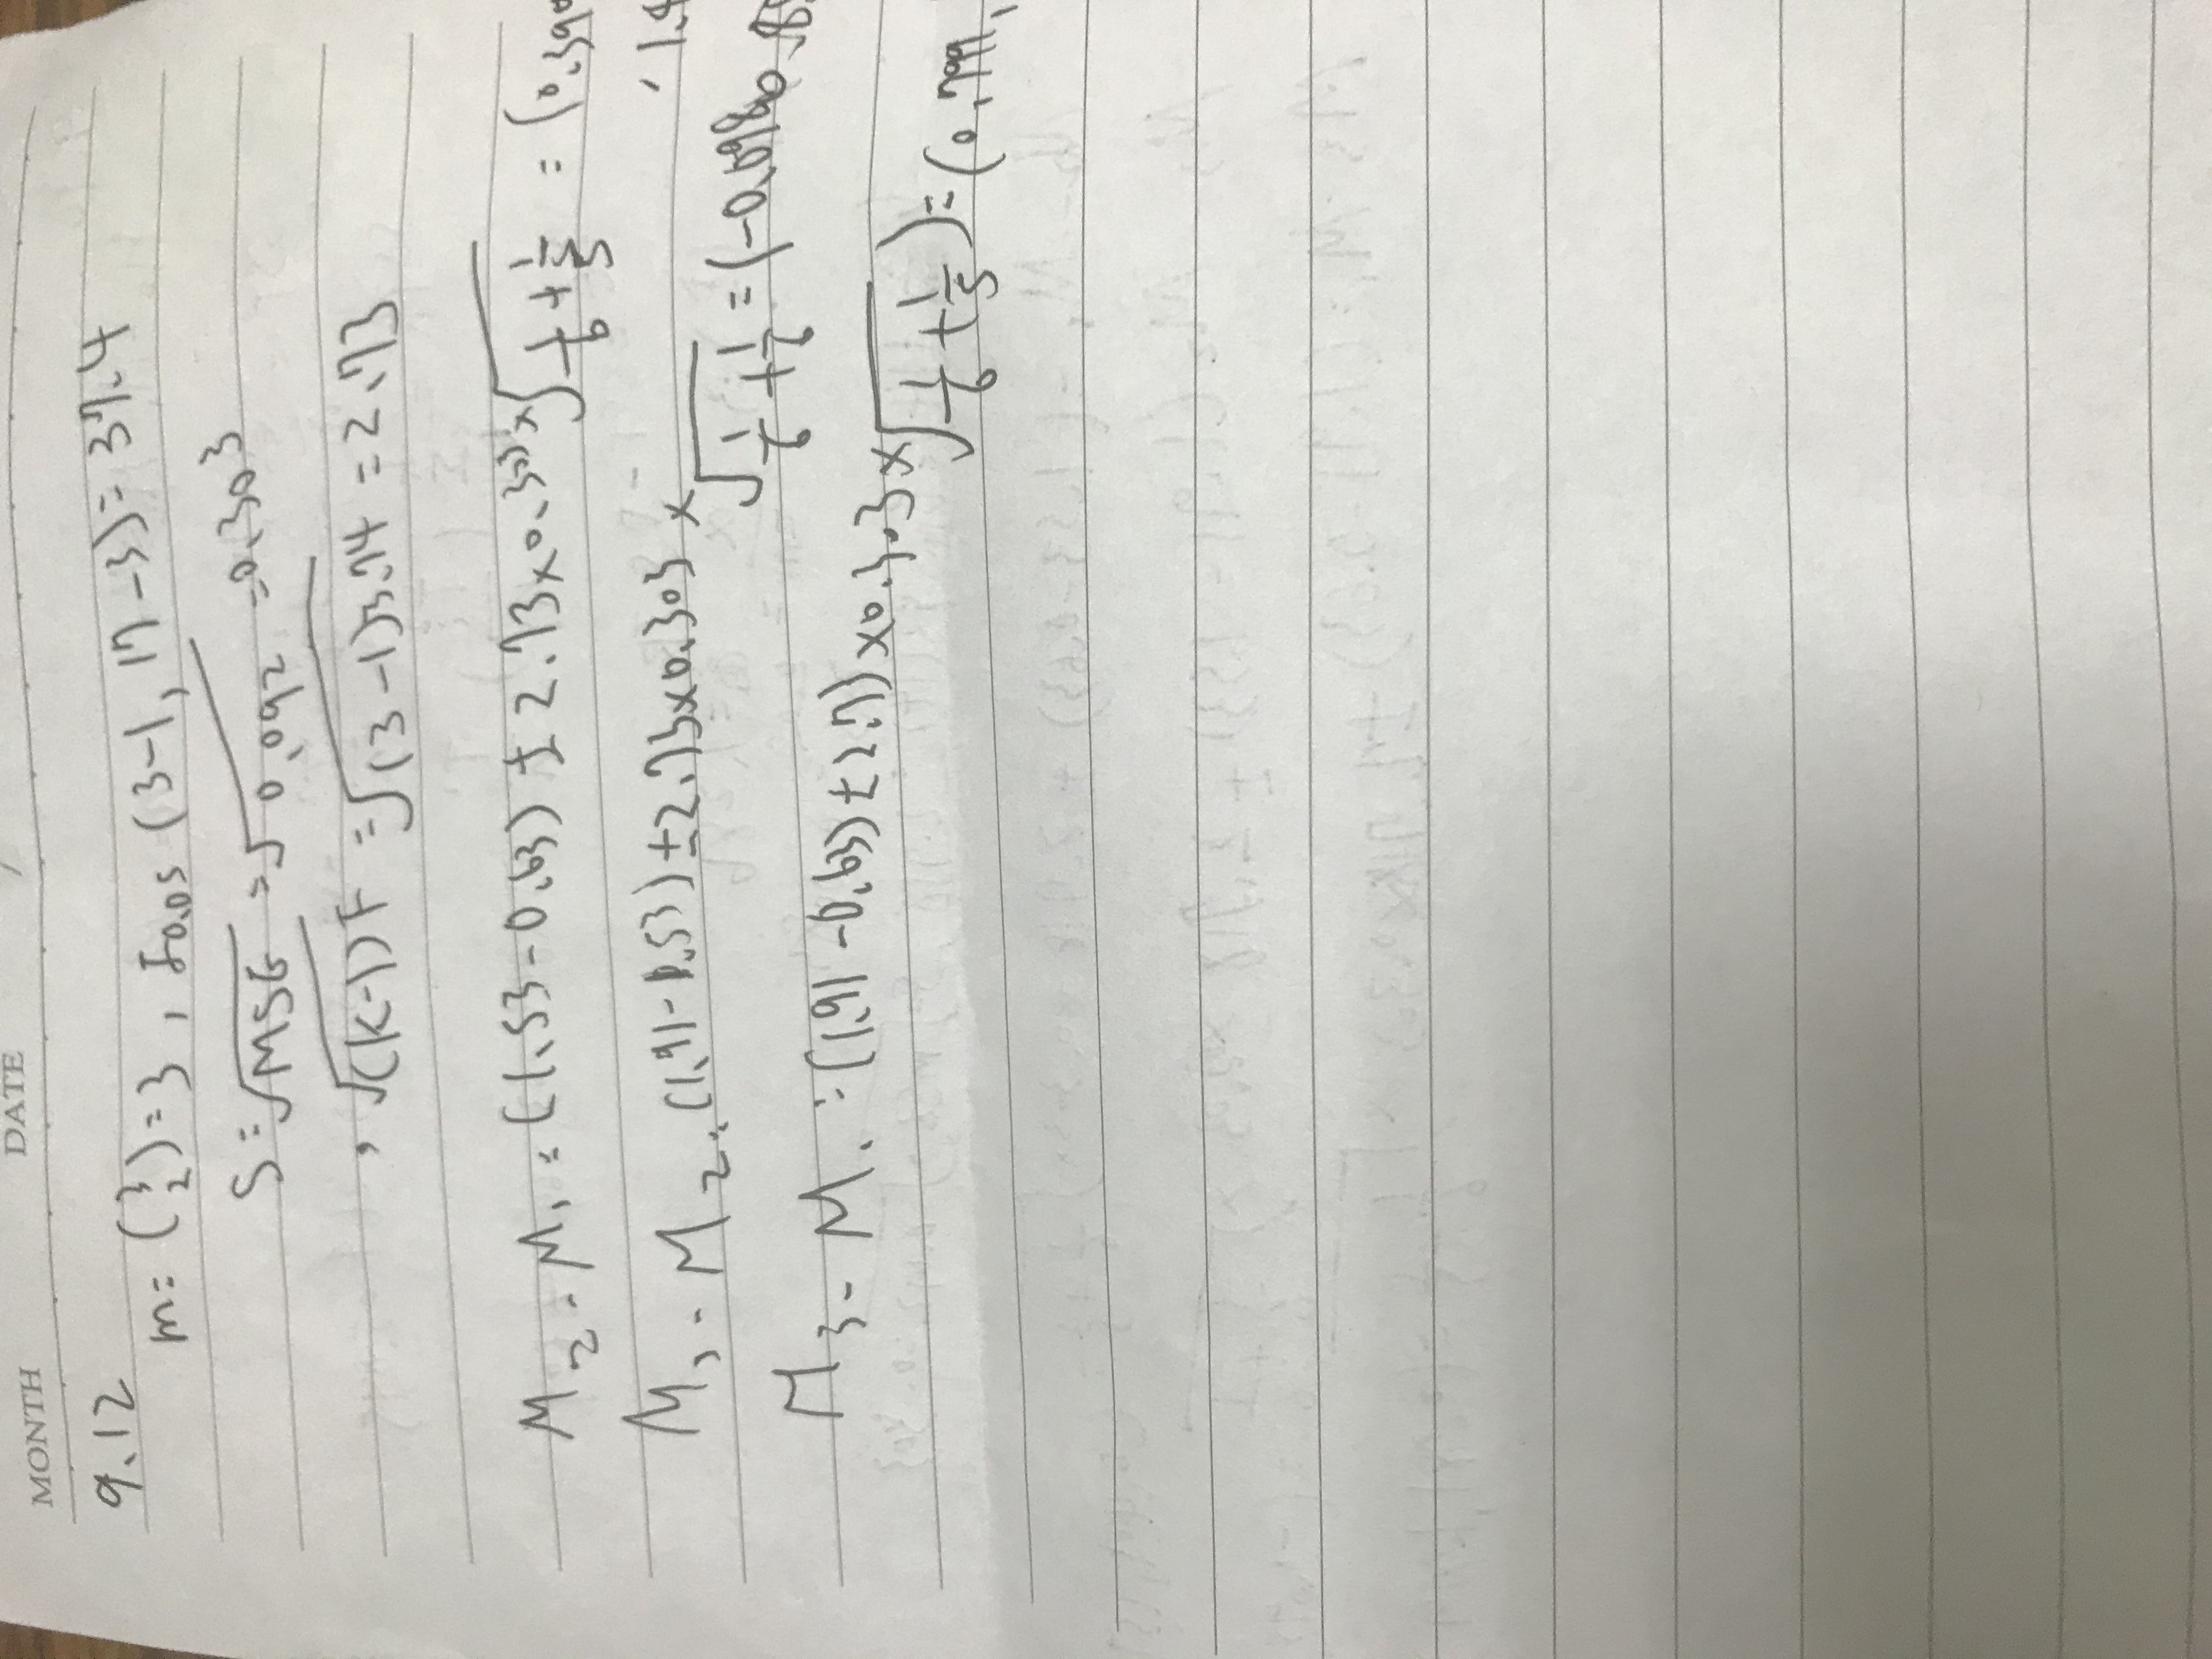 MONTH DATE /
9.12
m= (3 2) = 3 , F0.05 (3-1, 17-3) = 37.4
S = √MSE = √0.092 = 0.303
, √(k-1)F = √(3-1)3.74 = 2.73
M2 - M1 = (1.53-0.63) ± 2.73×0.303×√1/6+1/5 = (0.399
, 1.4
M3 - M2 = (1.91-1.53) ± 2.73×0.303 × √1/6+1/6 = (-0.098, 0.85
M3 - M1 = (1.91-0.63) ± 2.73×0.303×√1/6+1/5) = (0.799,